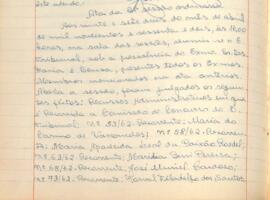 Ata da 21ª sessão ordinária
Aos vinte e sete dias do mês de abril
de mil novecentos e sessenta e dois, às 14,00
horas, na sala das sessões, deste
Tribunal, sob a presidência do Exmo. Sr. Des.
Faria e Sousa, presentes todos os Exmos.
Membros mencionados na ata anterior.
Aberta a sessão, foram julgados os seguin
tes feitos: Recursos Administrativos em que
é Recorrida a Comissão de Concurso do E.
Tribunal: nº 53/62. Recorrente: Maria do
Carmo de Vasconcelos; nº 58/62. Recorren
te: Maria Aparecida Leal da Paixão
nº 62/62. Recorrente: Marilia Pereira;
nº 68/62. Recorrente: José Muriel Cardoso;
nº 73/62. Recorrente: dos Santos